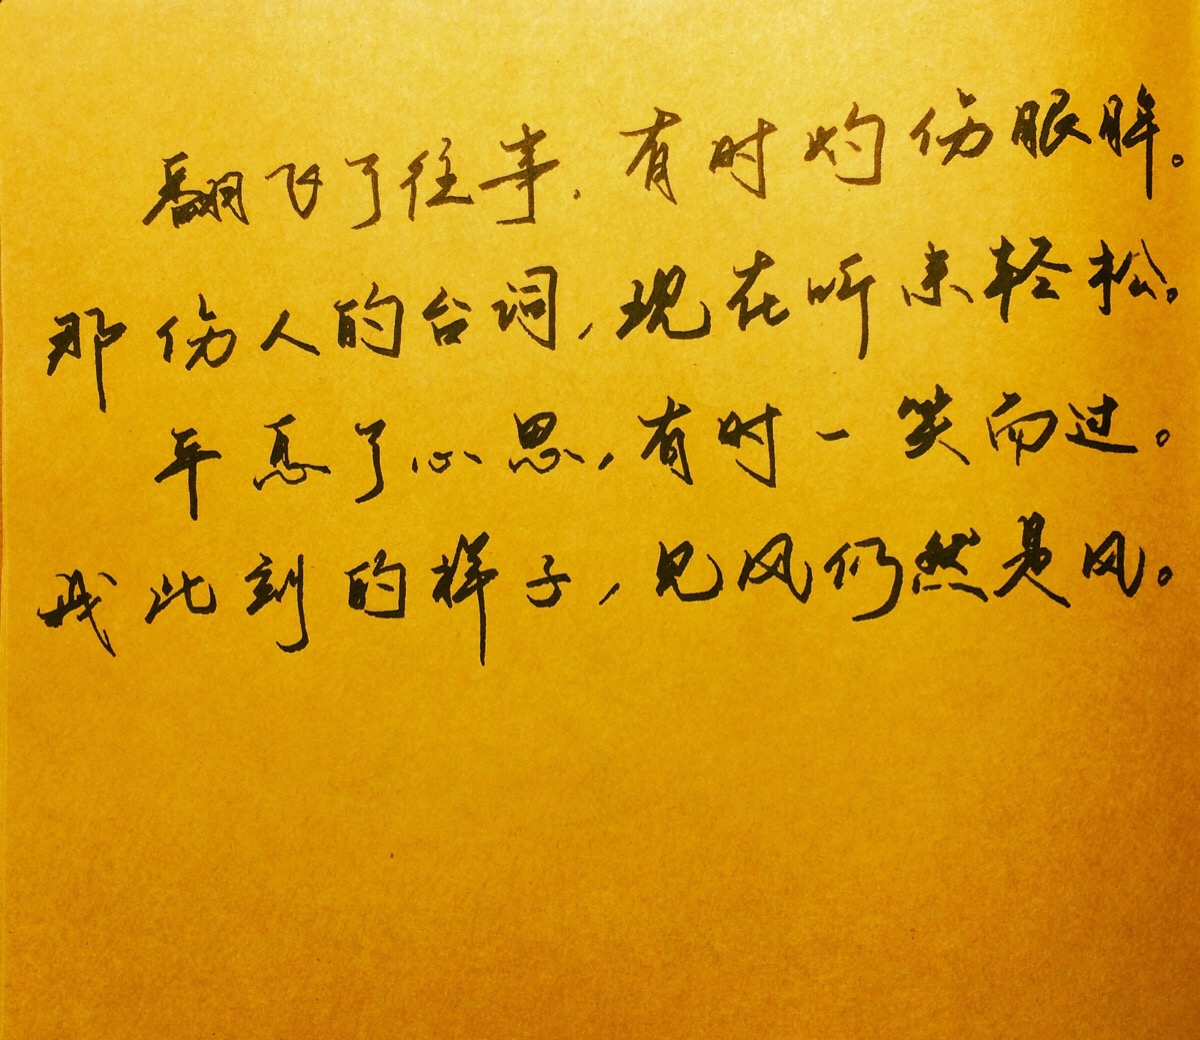 翻飞了往事,有时灼伤眼眸。
那伤人的台词,现在听来轻松。
平息了心思,有时一笑而过。
我此刻的样子,见风仍然是风。